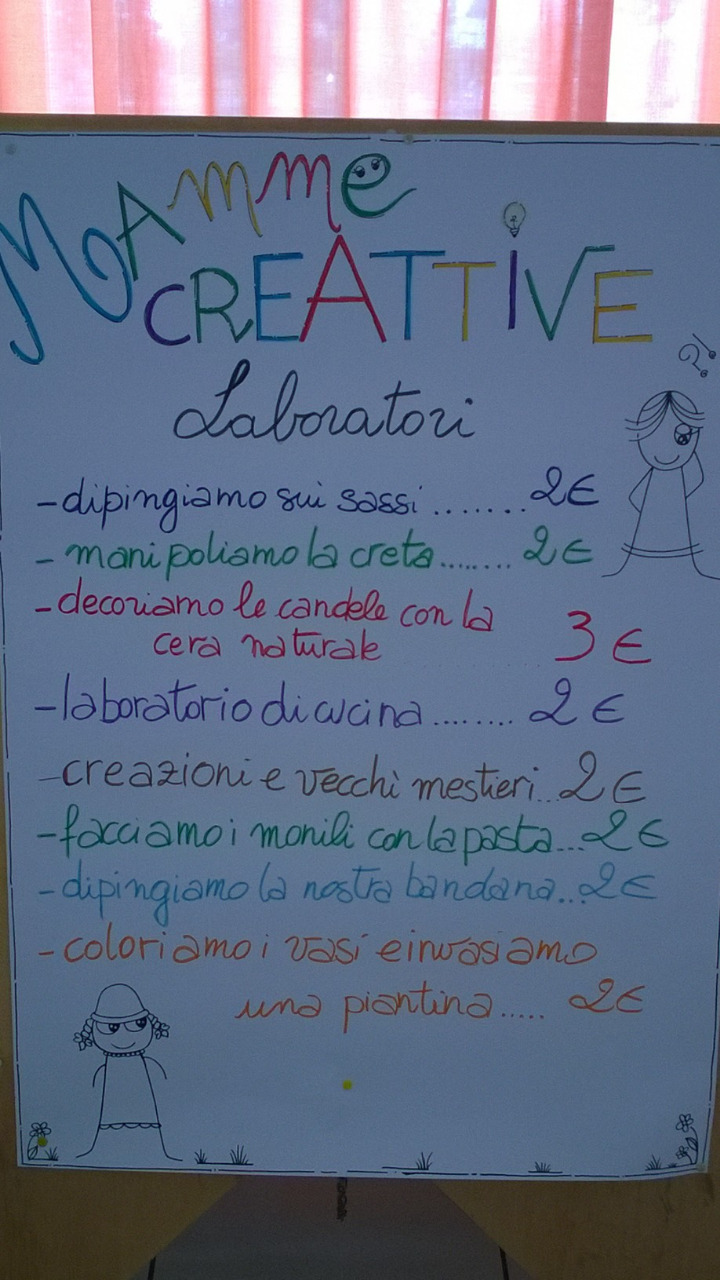 MAmme
CREATTIVE
Laboratori
?!
-dipingiamo sui sassi........2€
- manipoliamo la creta........ 2€
-decoriamo le candele con la
cera naturale 3 €
-laboratorio di cucina........ 2 €
-creazioni e vecchi mestieri... 2€
-facciamo i monili con la pasta...2€
-dipingiamo la nostra bandana...2€
-coloriamo i vasi e invasiamo
una piantina..... 2€